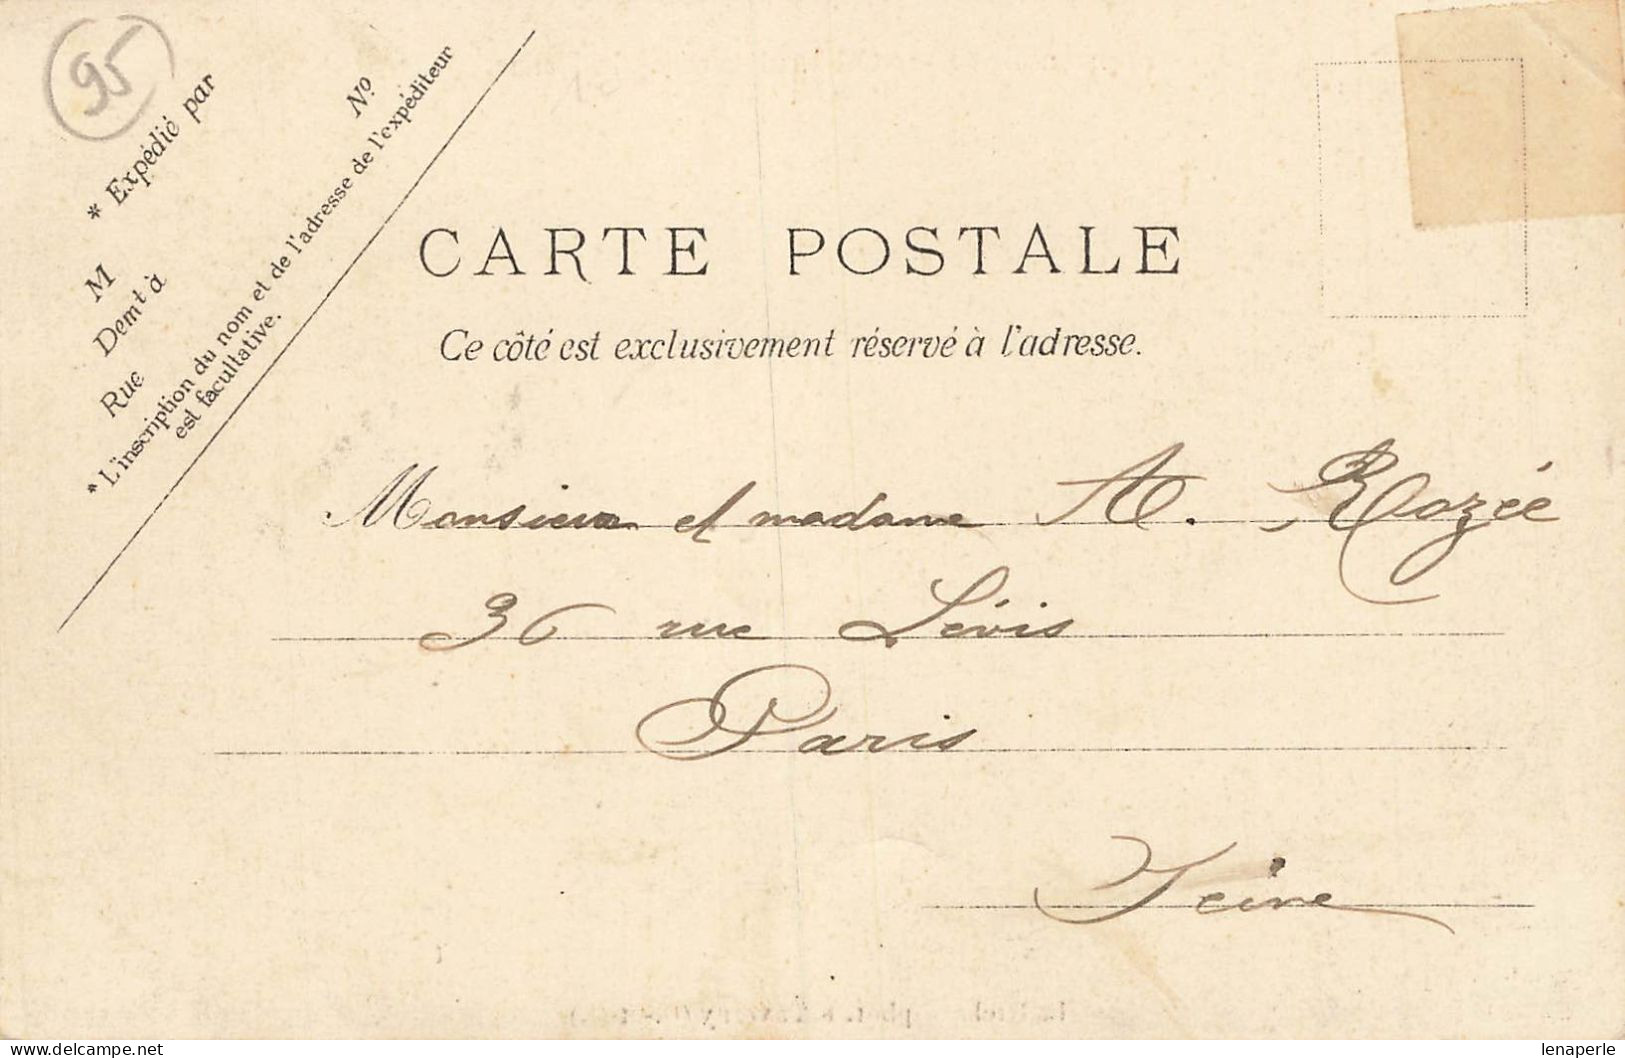 95
* Expédié par
M
Demt à
Rue Nº
* L'inscription du nom et de l'adresse de l'expéditeur
est facultative.
CARTE POSTALE
Ce côté est exclusivement réservé à l'adresse.
Monsieur et madame A. Rozée
36 rue Lévis
Paris
Seine
lenaperle